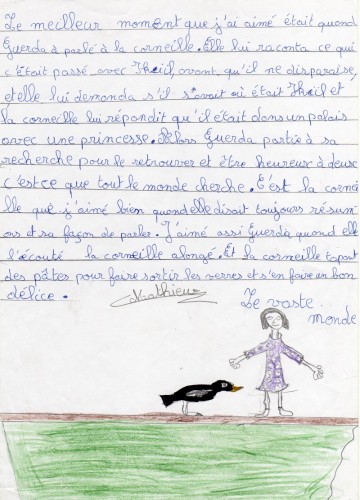 Le meilleur moment que j'ai aimé était quand
Guerda à parlé à la corneille. Elle lui raconta ce qui
c'était passé avec Theil, avant qu'il ne disparaise,
et elle lui demonda s'il savait où était Theil et
la corneille lui répondit qu'il était dans un palais
avec une princesse. Alors Guerda partie à sa
recherche pour le retrouver et être heureux à deux
c'est ce que tout le monde cherche. C'est la corne
lle que j'aimé bien quand elle disait toujours résum
ons et sa façon de parler. J'aimé assi Guerda quand elle
l'écouté la corneille alongé. Et la corneille tapant
des pâtes pour faire sortir les verres et s'en faire un bon
délice.
Mathieu
Le vaste
monde